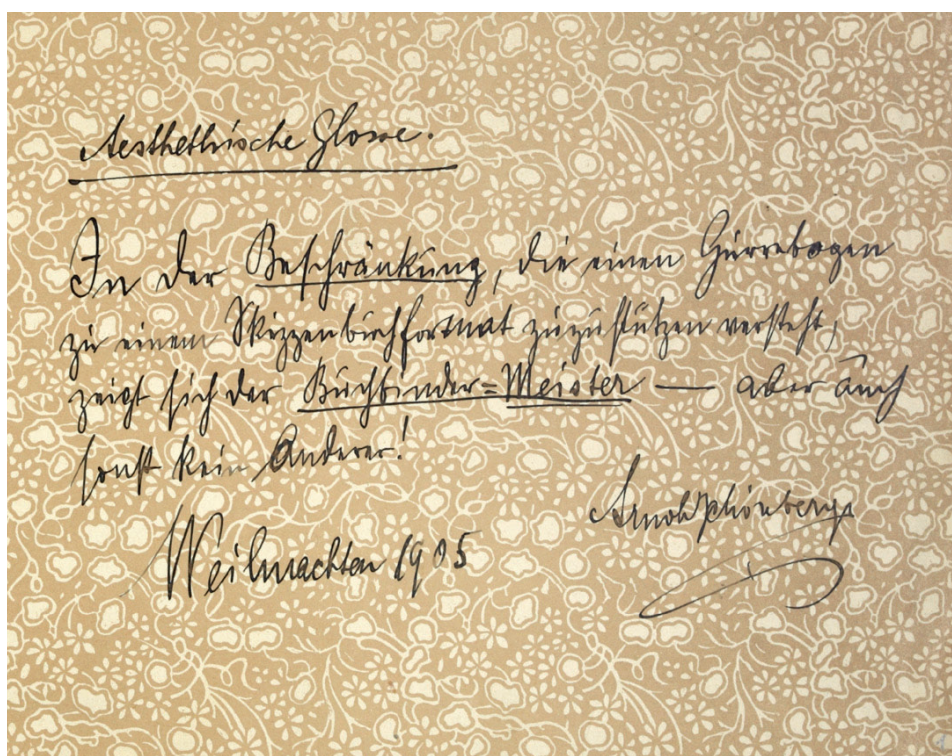 Aesthethische Glosse.
In der Beschränkung, die einen Gurrebogen
zu einem Skizzenbuchformat zuzustutzen versteht,
zeigt sich der Buchbinder=Meister — aber auch
sonst kein Anderer!
Arnold Schönberg
Weihnachten 1905